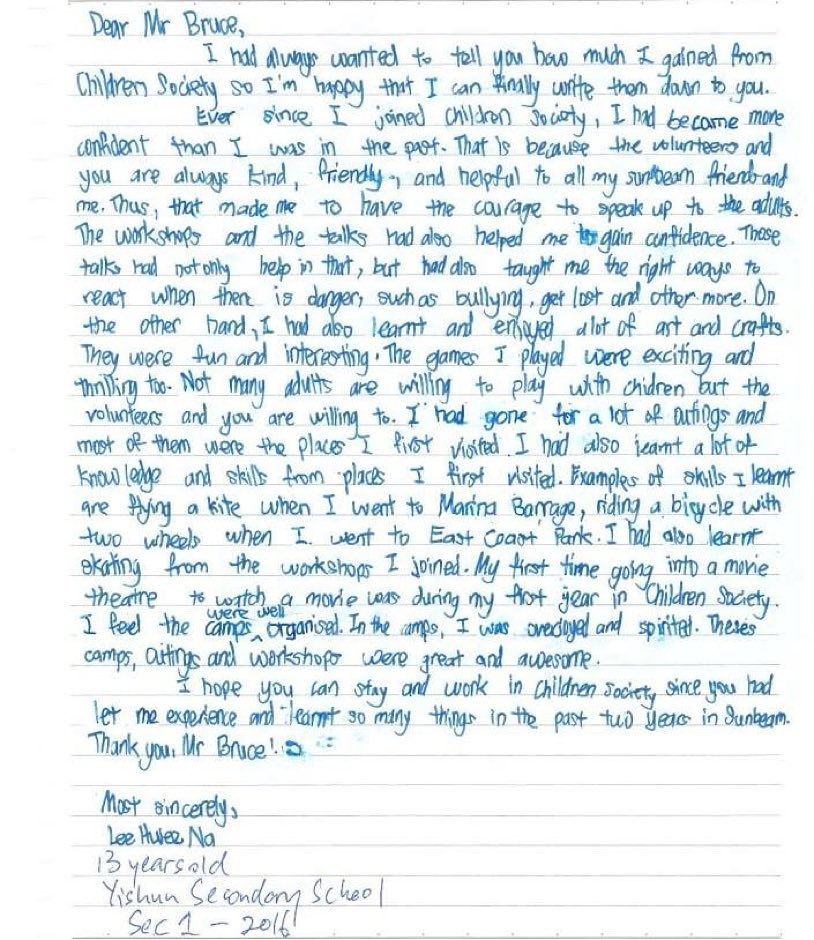 Dear Mr Bruce,
I had always wanted to tell you how much I gained from
Children Society so I'm happy that I can finally write them down to you.
Ever since I joined Children Society, I had become more
confident than I was in the past. That is because the volunteers and
you are always kind, friendly, and helpful to all my sunbeam friends and
me. Thus, that made me to have the courage to speak up to the adults.
The workshops and the talks had also helped me to gain confidence. Those
talks had not only help in that, but had also taught me the right ways to
react when there is danger, such as bullying, get lost and other more. On
the other hand, I had also learnt and enjoyed alot of art and crafts.
They were fun and interesting. The games I played were exciting and
thrilling too. Not many adults are willing to play with chidren but the
volunteers and you are willing to. I had gone for a lot of outings and
most of them were the places I first visited. I had also learnt a lot of
knowledge and skills from places I first visited. Examples of skills I learnt
are flying a kite when I went to Marina Barrage, riding a bicycle with
two wheels when I went to East Coast Park. I had also learnt
skating from the workshops I joined. My first time going into a movie
theatre to watch a movie was during my first year in Children Society.
I feel the camps were well organised. In the camps, I was overjoyed and spirited. Theses
camps, outings and workshops were great and awesome.
I hope you can stay and work in Children Society since you had
let me experience and learnt so many things in the past two years in Sunbeam.
Thank you, Mr Bruce!
Most sincerely,
Lee Huiee Na
13 years old
Yishun Secondary School
Sec 1 - 2016